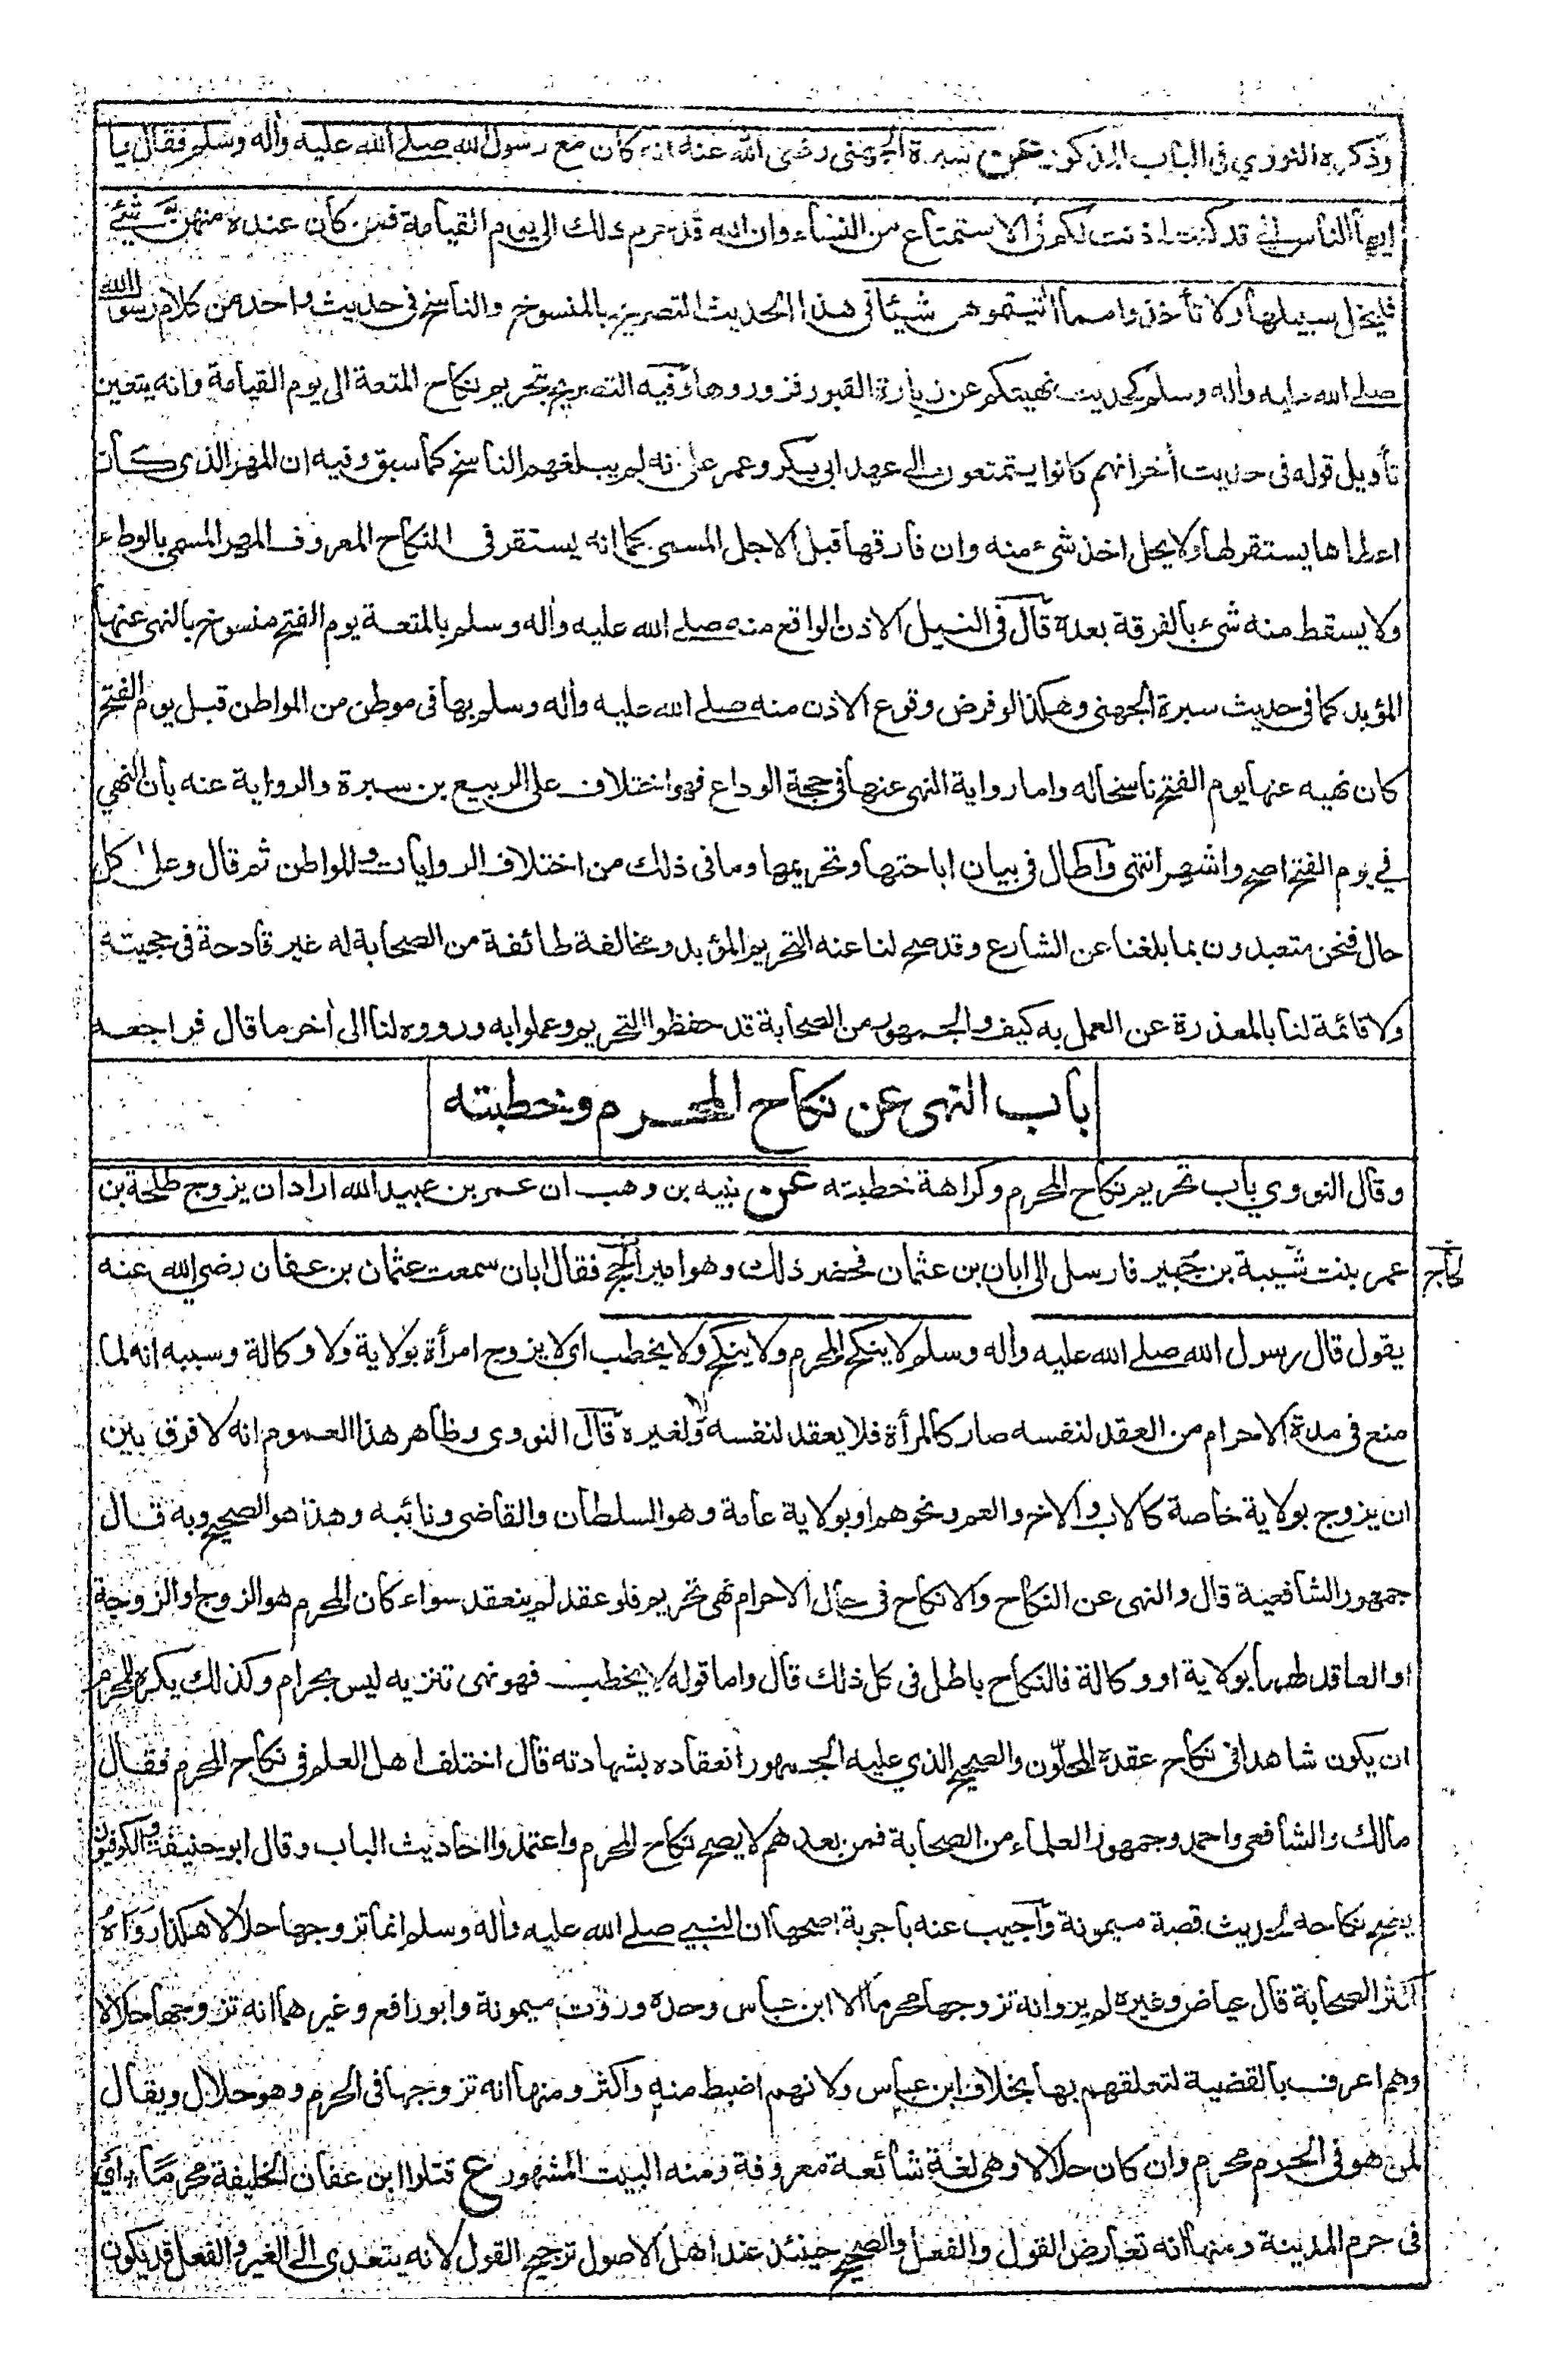 وذكره النووي في الباب المذكور عن سبرة الجهنى رضى الله عنه انه كان مع رسول الله صلى الله عليه وأله وسلم فقال يا
ايها الناس اني قد كنت اذنت لكم في الاستمتاع من النساء وان الله قد حرم ذلك الى يوم القيامة فمن كان عنده منهن شئ
فليخل سبيلها ولا تأخذوا مما أتيتموهن شيئا فى هذا الحديث التصريح بالمنسوخ والناسخ فى حديث واحد من كلام رسول الله
صلى الله عليه وأله وسلم كحديث نهيتكم عن زيارة القبور فزوروها وفيه التصريح بتحريم نكاح المتعة الى يوم القيامة وانه يتعين
تأويل قوله فى حديث أخر انهم كانوا يستمتعون الى عهد ابى بكر وعمر على انه لم يبلغهم الناسخ كما سبق وفيه ان المهر الذى كان
اعطاها يستقر لها ولا يحل اخذ شىء منه وان فارقها قبل الاجل المسمى كما انه يستقر فى النكاح المعروف المهر المسمى بالوطء
ولا يسقط منه شىء بالفرقة بعده قال فى النيل الاذن الواقع منه صلى الله عليه وأله وسلم بالمتعة يوم الفتح منسوخ بالنهى عنها
المؤبد كما فى حديث سبرة الجهنى وهكذا لو فرض وقوع الاذن منه صلى الله عليه وأله وسلم بها فى موطن من المواطن قبل يوم الفتح
كان نهيه عنها يوم الفتح ناسخا له واما رواية النهى عنها فى حجة الوداع فهو اختلاف على الربيع بن سبرة والرواية عنه بأن النهي
في يوم الفتح اصح واشهر انتهى وأطال فى بيان اباحتها وتحريمها وما فى ذلك من اختلاف الروايات والمواطن ثم قال وعلى كل
حال فنحن متعبدون بما بلغنا عن الشارع وقد صح لنا عنه التحريم المؤبد ومخالفة طائفة من الصحابة له غير قادحة فى حجيته
ولا قائمة لنا بالمعذرة عن العمل به كيف والجمهور من الصحابة قد حفظوا التحريم وعملوا به ورووه لنا الى أخر ما قال فراجعه
باب النهى عن نكاح المحرم وخطبته
وقال النووي باب تحريم نكاح المحرم وكراهة خطبته عن نبيه بن وهب ان عمر بن عبيد الله اراد ان يزوج طلحة بن
عمر بنت شيبة بن جبير فارسل الى ابان بن عثمان فحضر ذلك وهو امير الحج فقال ابان سمعت عثمان بن عفان رضي الله عنه
الحاج
يقول قال رسول الله صلى الله عليه وأله وسلم لا ينكح المحرم ولا ينكح ولا يخطب اى لا يزوج امرأة بولاية ولا وكالة وسببه انه لما
منع فى مدة الاحرام من العقد لنفسه صار كالمرأة فلا يعقد لنفسه ولا لغيره قال النووى وظاهر هذا العموم انه لا فرق بين
ان يزوج بولاية خاصة كالاب والاخ والعم ونحوهم او بولاية عامة وهو السلطان والقاضى ونائبه وهذا هو الصحيح وبه قال
جمهور الشافعية قال والنهى عن النكاح والانكاح فى حال الاحرام نهى تحريم فلو عقد لم ينعقد سواء كان المحرم هو الزوج او الزوجة
او العاقد لهما بولاية او وكالة فالنكاح باطل فى كل ذلك قال واما قوله لا يخطب فهو نهى تنزيه ليس بحرام وكذلك يكره للمحرم
ان يكون شاهدا فى نكاح عقده المحلّون والصحيح الذي عليه الجمهور انعقاده بشهادته قال اختلف اهل العلم فى نكاح المحرم فقال
مالك والشافعى واحمد وجمهور العلماء من الصحابة فمن بعدهم لا يصح نكاح المحرم واعتمدوا احاديث الباب وقال ابو حنيفة والكوفيون
يصح نكاحه لحديث قصة ميمونة وأجيب عنه بأجوبة اصحها ان النبي صلى الله عليه وأله وسلم انما تزوجها حلالا هكذا رواه
اكثر الصحابة قال عياض وغيره لم يرو انه تزوجها محرما الا ابن عباس وحده وروت ميمونة وابو رافع وغيرهما انه تزوجها حلالا
وهم اعرف بالقضية لتعلقهم بها بخلاف ابن عباس ولانهم اضبط منه واكثر ومنها انه تزوجها فى الحرم وهو حلال ويقال
لمن هو فى الحرم محرم وان كان حلالا وهى لغة شائعة معروفة ومنه البيت المشهور ع قتلوا ابن عفان الخليفة محرمًا ، اي
فى حرم المدينة ومنها انه تعارض القول والفعل والصحيح حينئذ عند اهل الاصول ترجيح القول لانه يتعدى الى الغير والفعل قد يكون